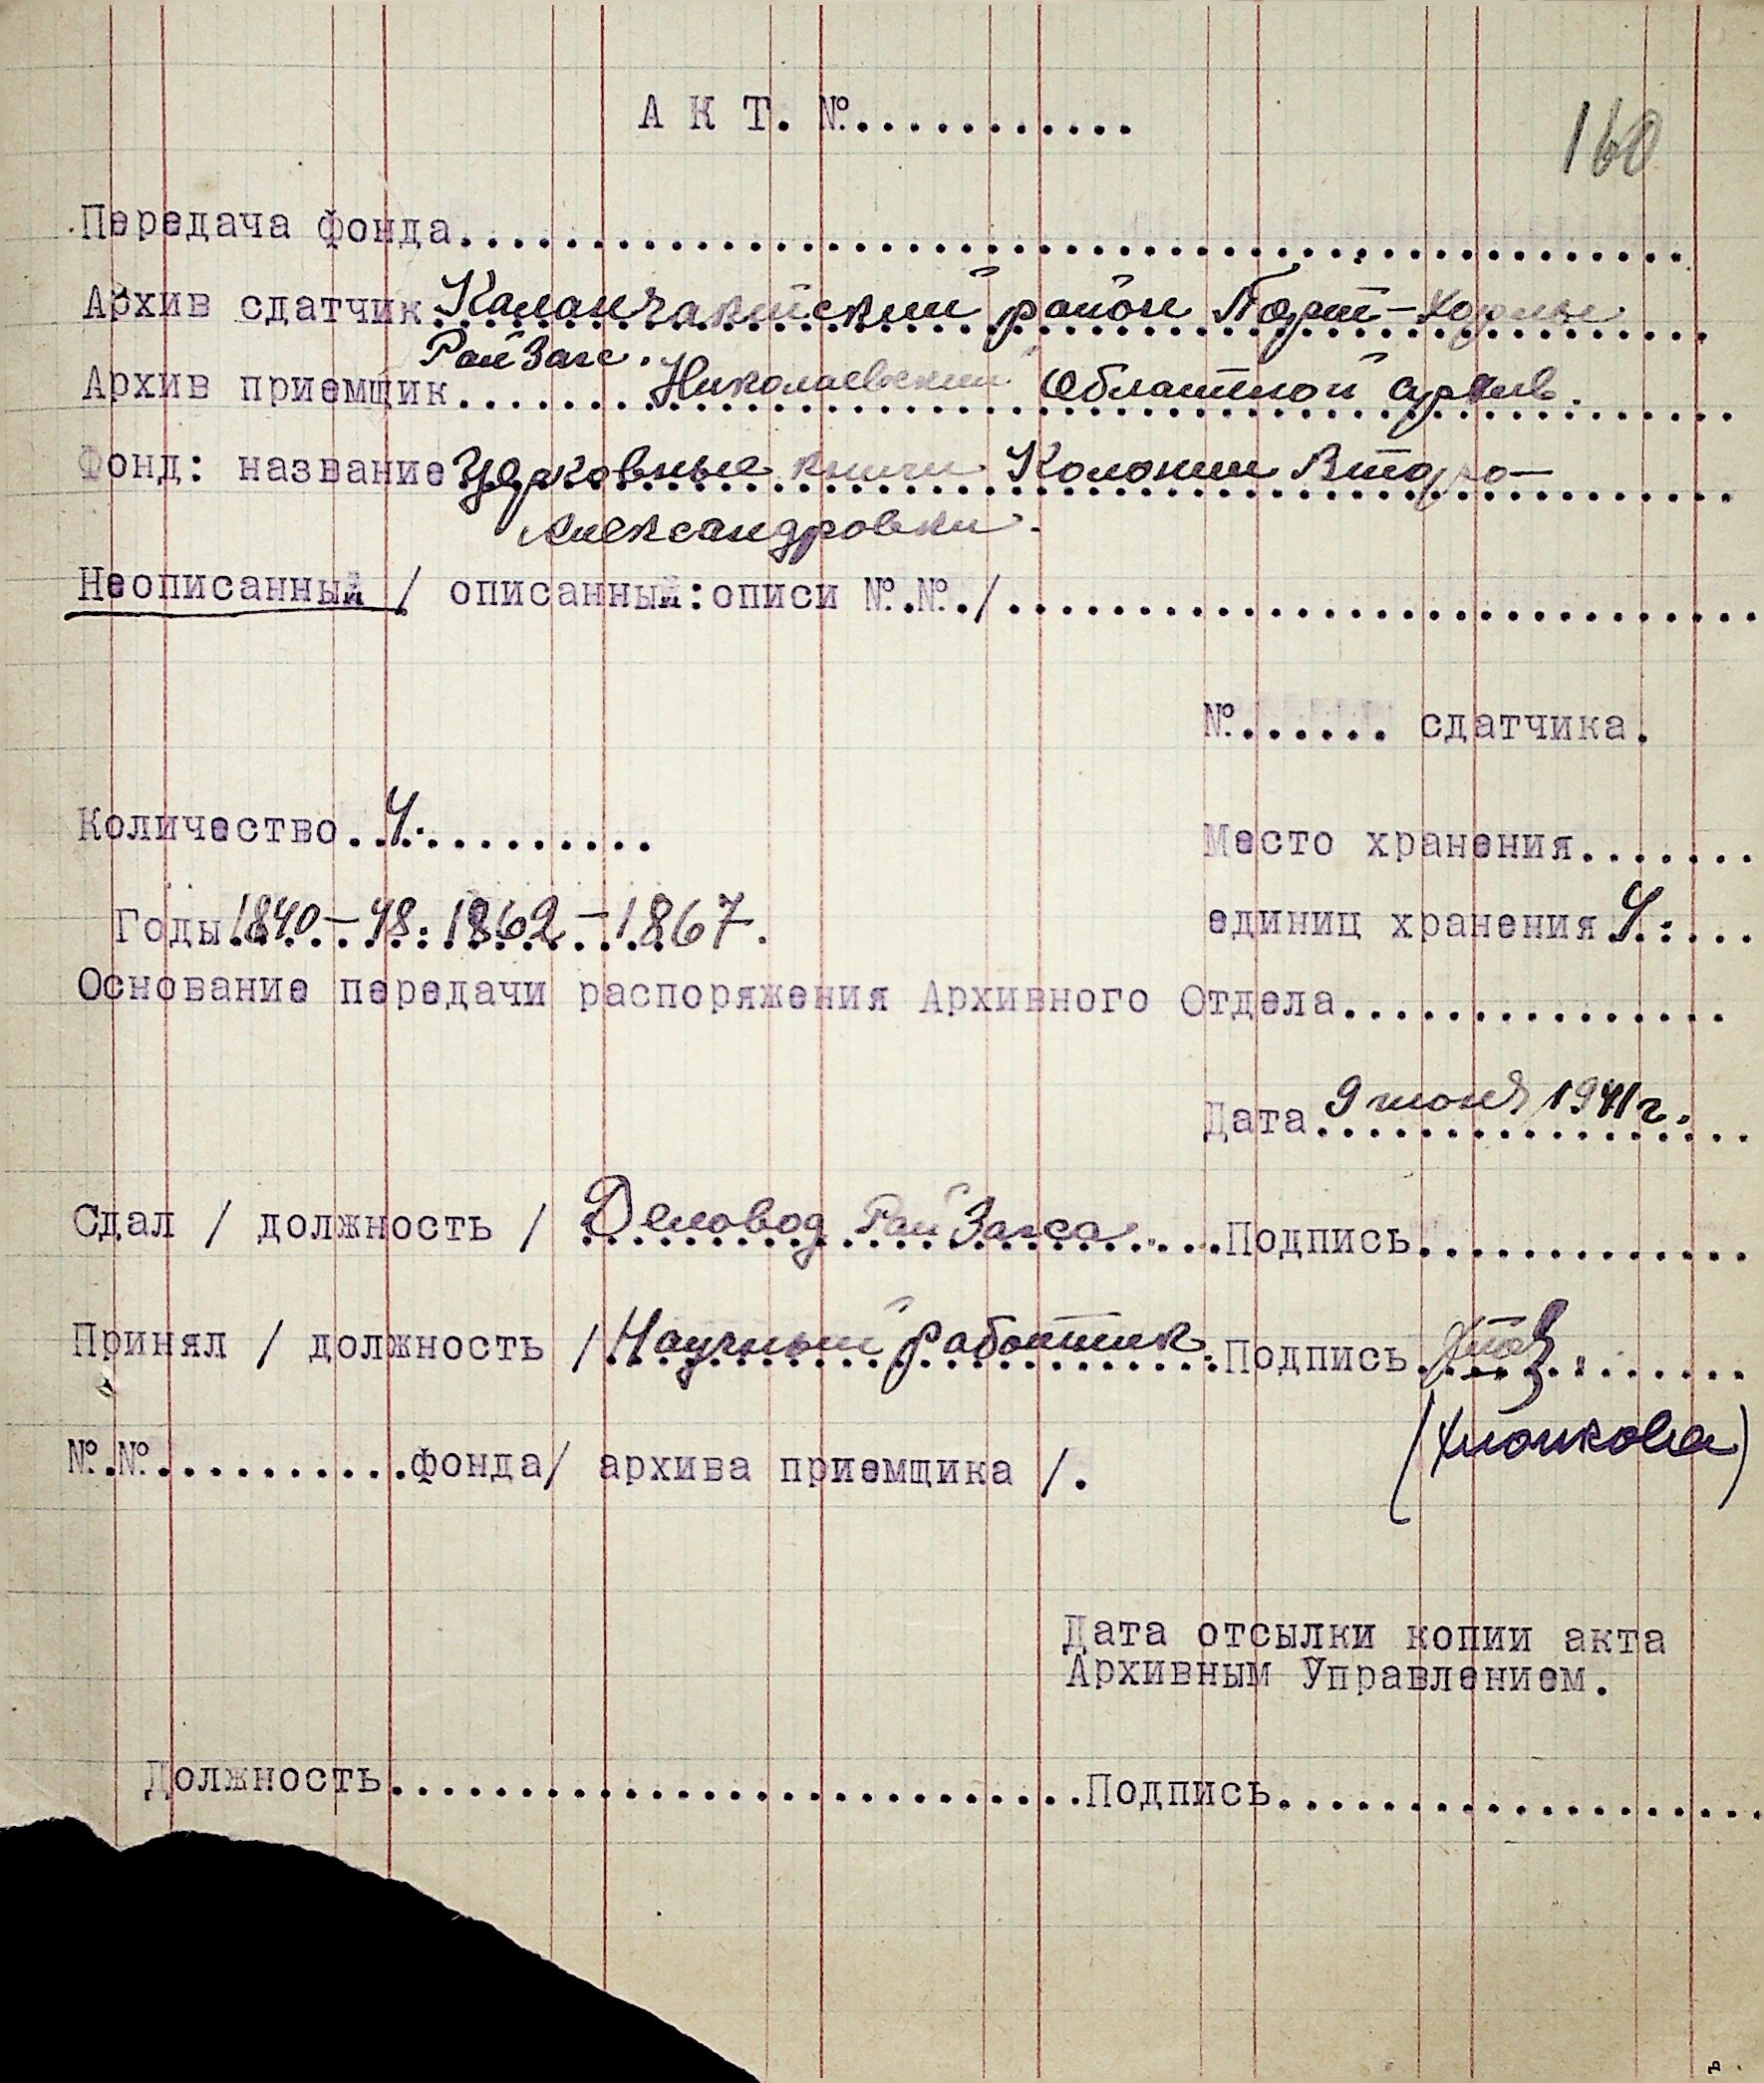 АКТ. №............
160
Передача фонда...............................................
Архив сдатчик Каланчакский район Порт-Хорлы
РайЗагс.
Архив приемщик....... Николаевский Областной архив.
Фонд: название Церковные книги Колонии Второ-
Александровки.
Неописанный / описанный: описи №.№./.............................
№...... сдатчика.
Количество. 4. .........
Место хранения.......
Годы 1840-48. 1862-1867.
единиц хранения 4. ...
Основание передачи распоряжения Архивного Отдела...............
Дата 9 июня 1941 г.
Сдал / должность / Деловод РайЗагса....Подпись.............
Принял / должность / Научный работник. Подпись
№.№..........фонда/ архива приемщика /.
Дата отсылки копии акта
Архивным Управлением.
Должность...........................Подпись...................